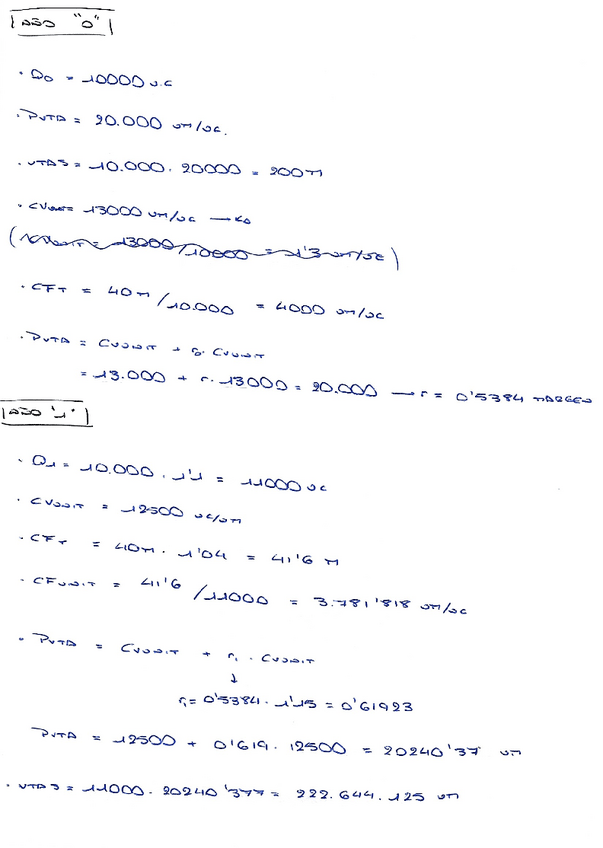 AÑO "0"
· Q0 = 10000 u.c
· PVTA = 20.000 um/uc.
· VTAS = 10.000 . 20000 = 200 M
· CVunit = 13000 um/uc → K0
(CVunit = 13000/10000 = 1'3 um/uc)
· CFT = 40M/10.000 = 4000 um/uc
· PVTA = CVUNIT + r0. CVUNIT
= 13.000 + r. 13000 = 20.000 → r = 0'5384 MARGEN
AÑO "1"
· Q1 = 10.000 . 1'1 = 11000 uc
· CVUNIT = 12500 uc/um
· CFT = 40M . 1'04 = 41'6 M
· CFUNIT = 41'6 /11000 = 3.781'818 um/uc
· PVTA = CVUNIT + r1 . CVUNIT
↓
r1= 0'5384 . 1'15 = 0'61923
PVTA = 12500 + 0'619 . 12500 = 20240'37 um
· VTAS = 11000 . 20240'377 = 222.644.125 um